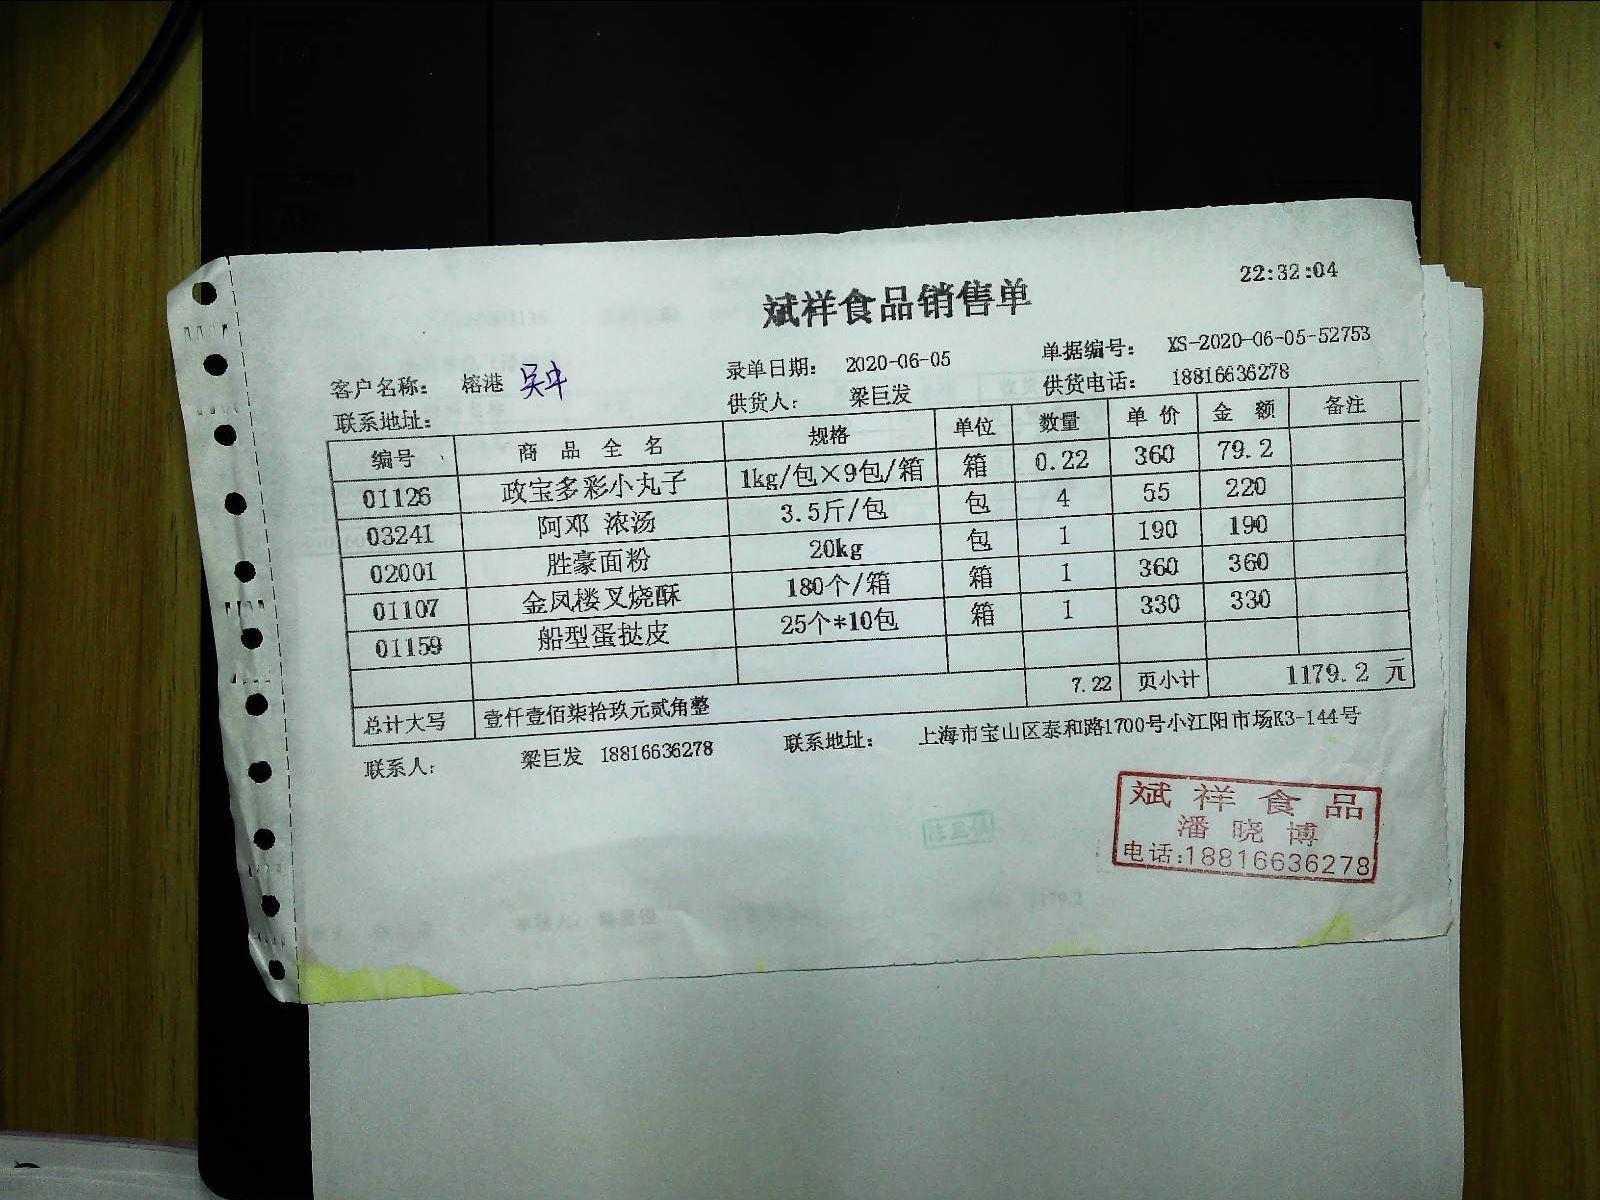 22:32:04
斌祥食品销售单
客户名称: 榕港 吴中 录单日期: 2020-06-05 单据编号: XS-2020-06-05-52753
联系地址: 供货人: 梁巨发 供货电话: 18816636278
编号 商品全名 规格 单位 数量 单价 金额 备注
01126 政宝多彩小丸子 1kg/包×9包/箱 箱 0.22 360 79.2
03241 阿邓 浓汤 3.5斤/包 包 4 55 220
02001 胜豪面粉 20kg 包 1 190 190
01107 金凤楼叉烧酥 180个/箱 箱 1 360 360
01159 船型蛋挞皮 25个*10包 箱 1 330 330
7.22 页小计 1179.2 元
总计大写 壹仟壹佰柒拾玖元贰角整
联系人: 梁巨发 18816636278 联系地址: 上海市宝山区泰和路1700号小江阳市场K3-144号
斌祥食品
潘晓博
电话:18816636278